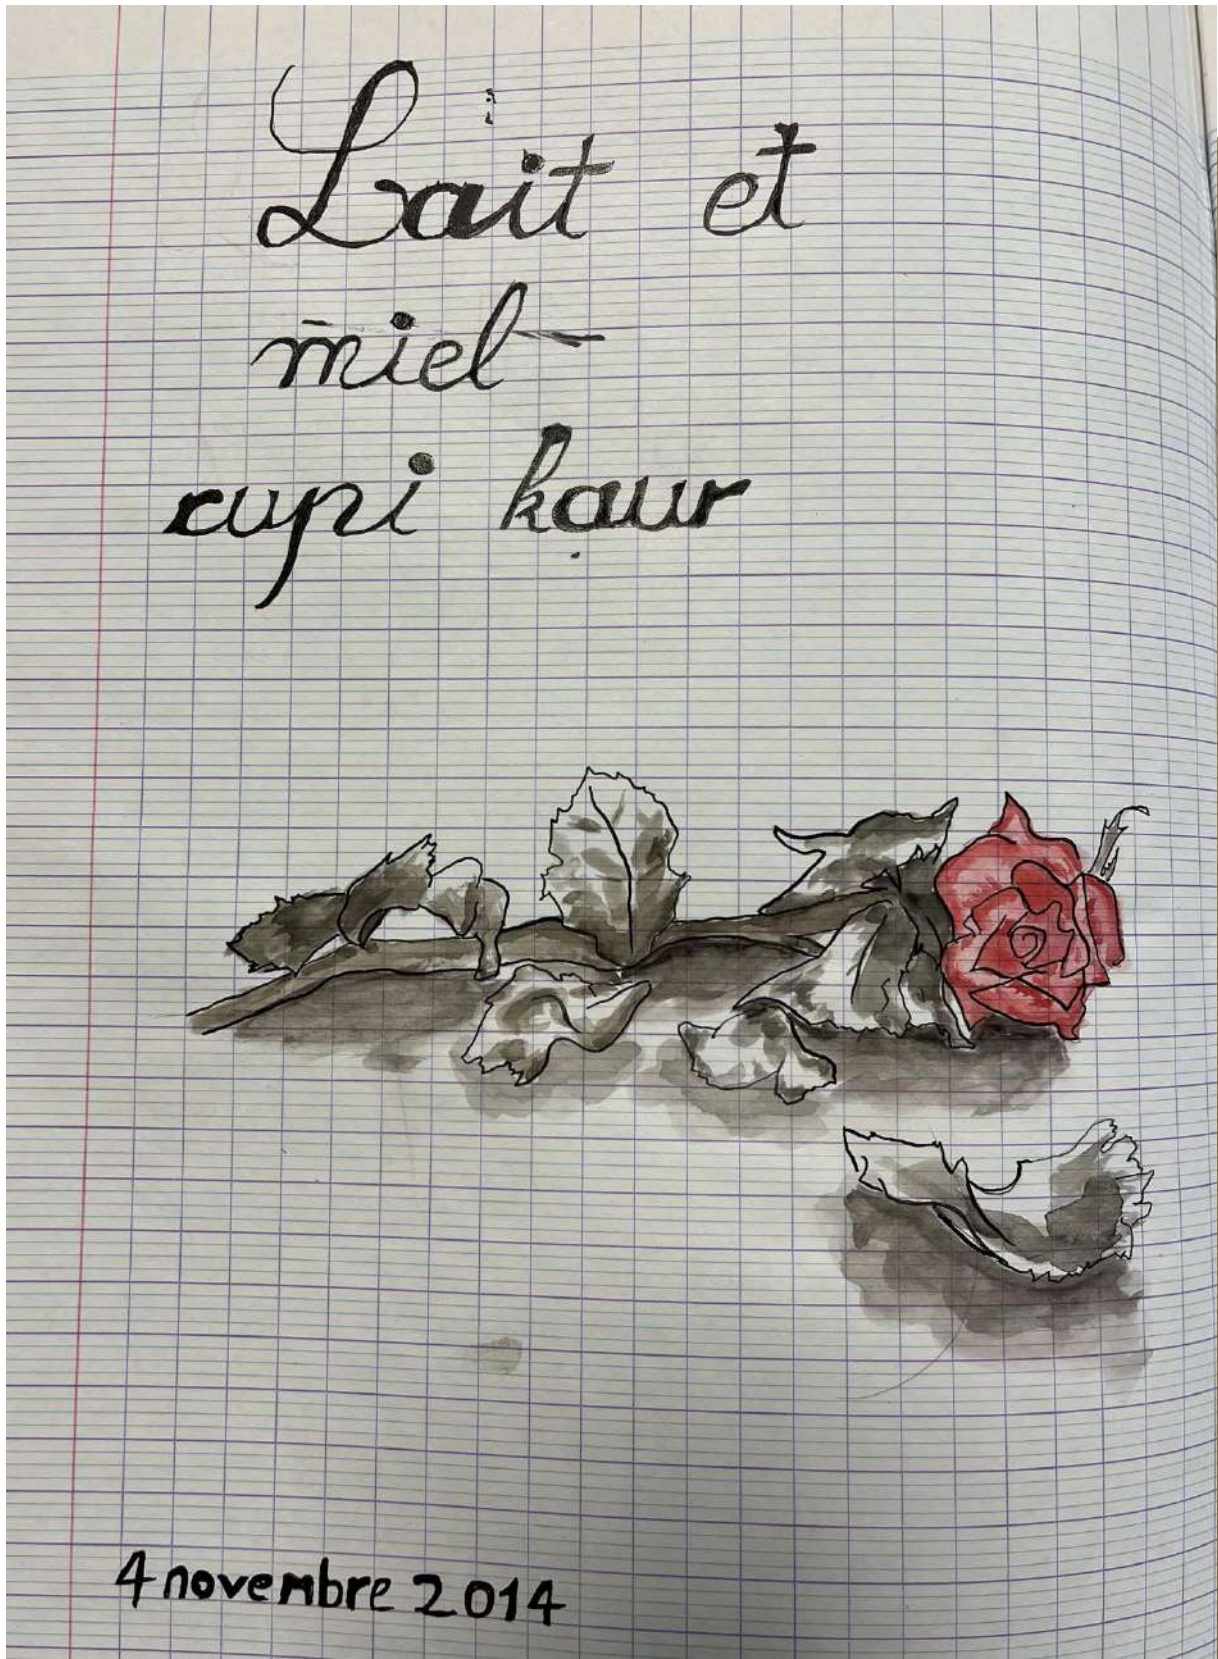 Lait et
miel
rupi kaur
4 novembre 2014